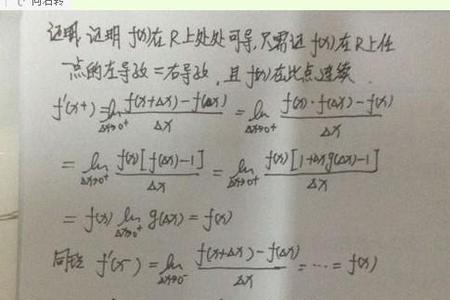 证明: 证明 f(x)在R上处处可导,只需证 f(x)在R上任
一点的左导数=右导数,且 f(x)在此点连续.
f'(x+)=lim Δx→0+ (f(x+Δx)-f(Δx))/Δx = lim Δx→0+ (f(x)·f(Δx)-f(x))/Δx
= lim Δx→0+ f(x)[f(Δx)-1]/Δx = lim Δx→0+ f(x)[1+Δxg(Δx)-1]/Δx
= f(x) lim Δx→0+ g(Δx) = f(x)
同理 f'(x-) = lim Δx→0- (f(x+Δx)-f(Δx))/Δx = ... = f(x)